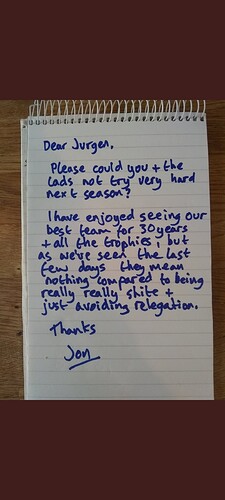 Dear Jurgen,
Please could you + the
lads not try very hard
next season?
I have enjoyed seeing our
best team for 30 years
+ all the trophies, but
as we've seen the last
few days they mean
nothing compared to being
really really shite +
just avoiding relegation.
Thanks
Jon